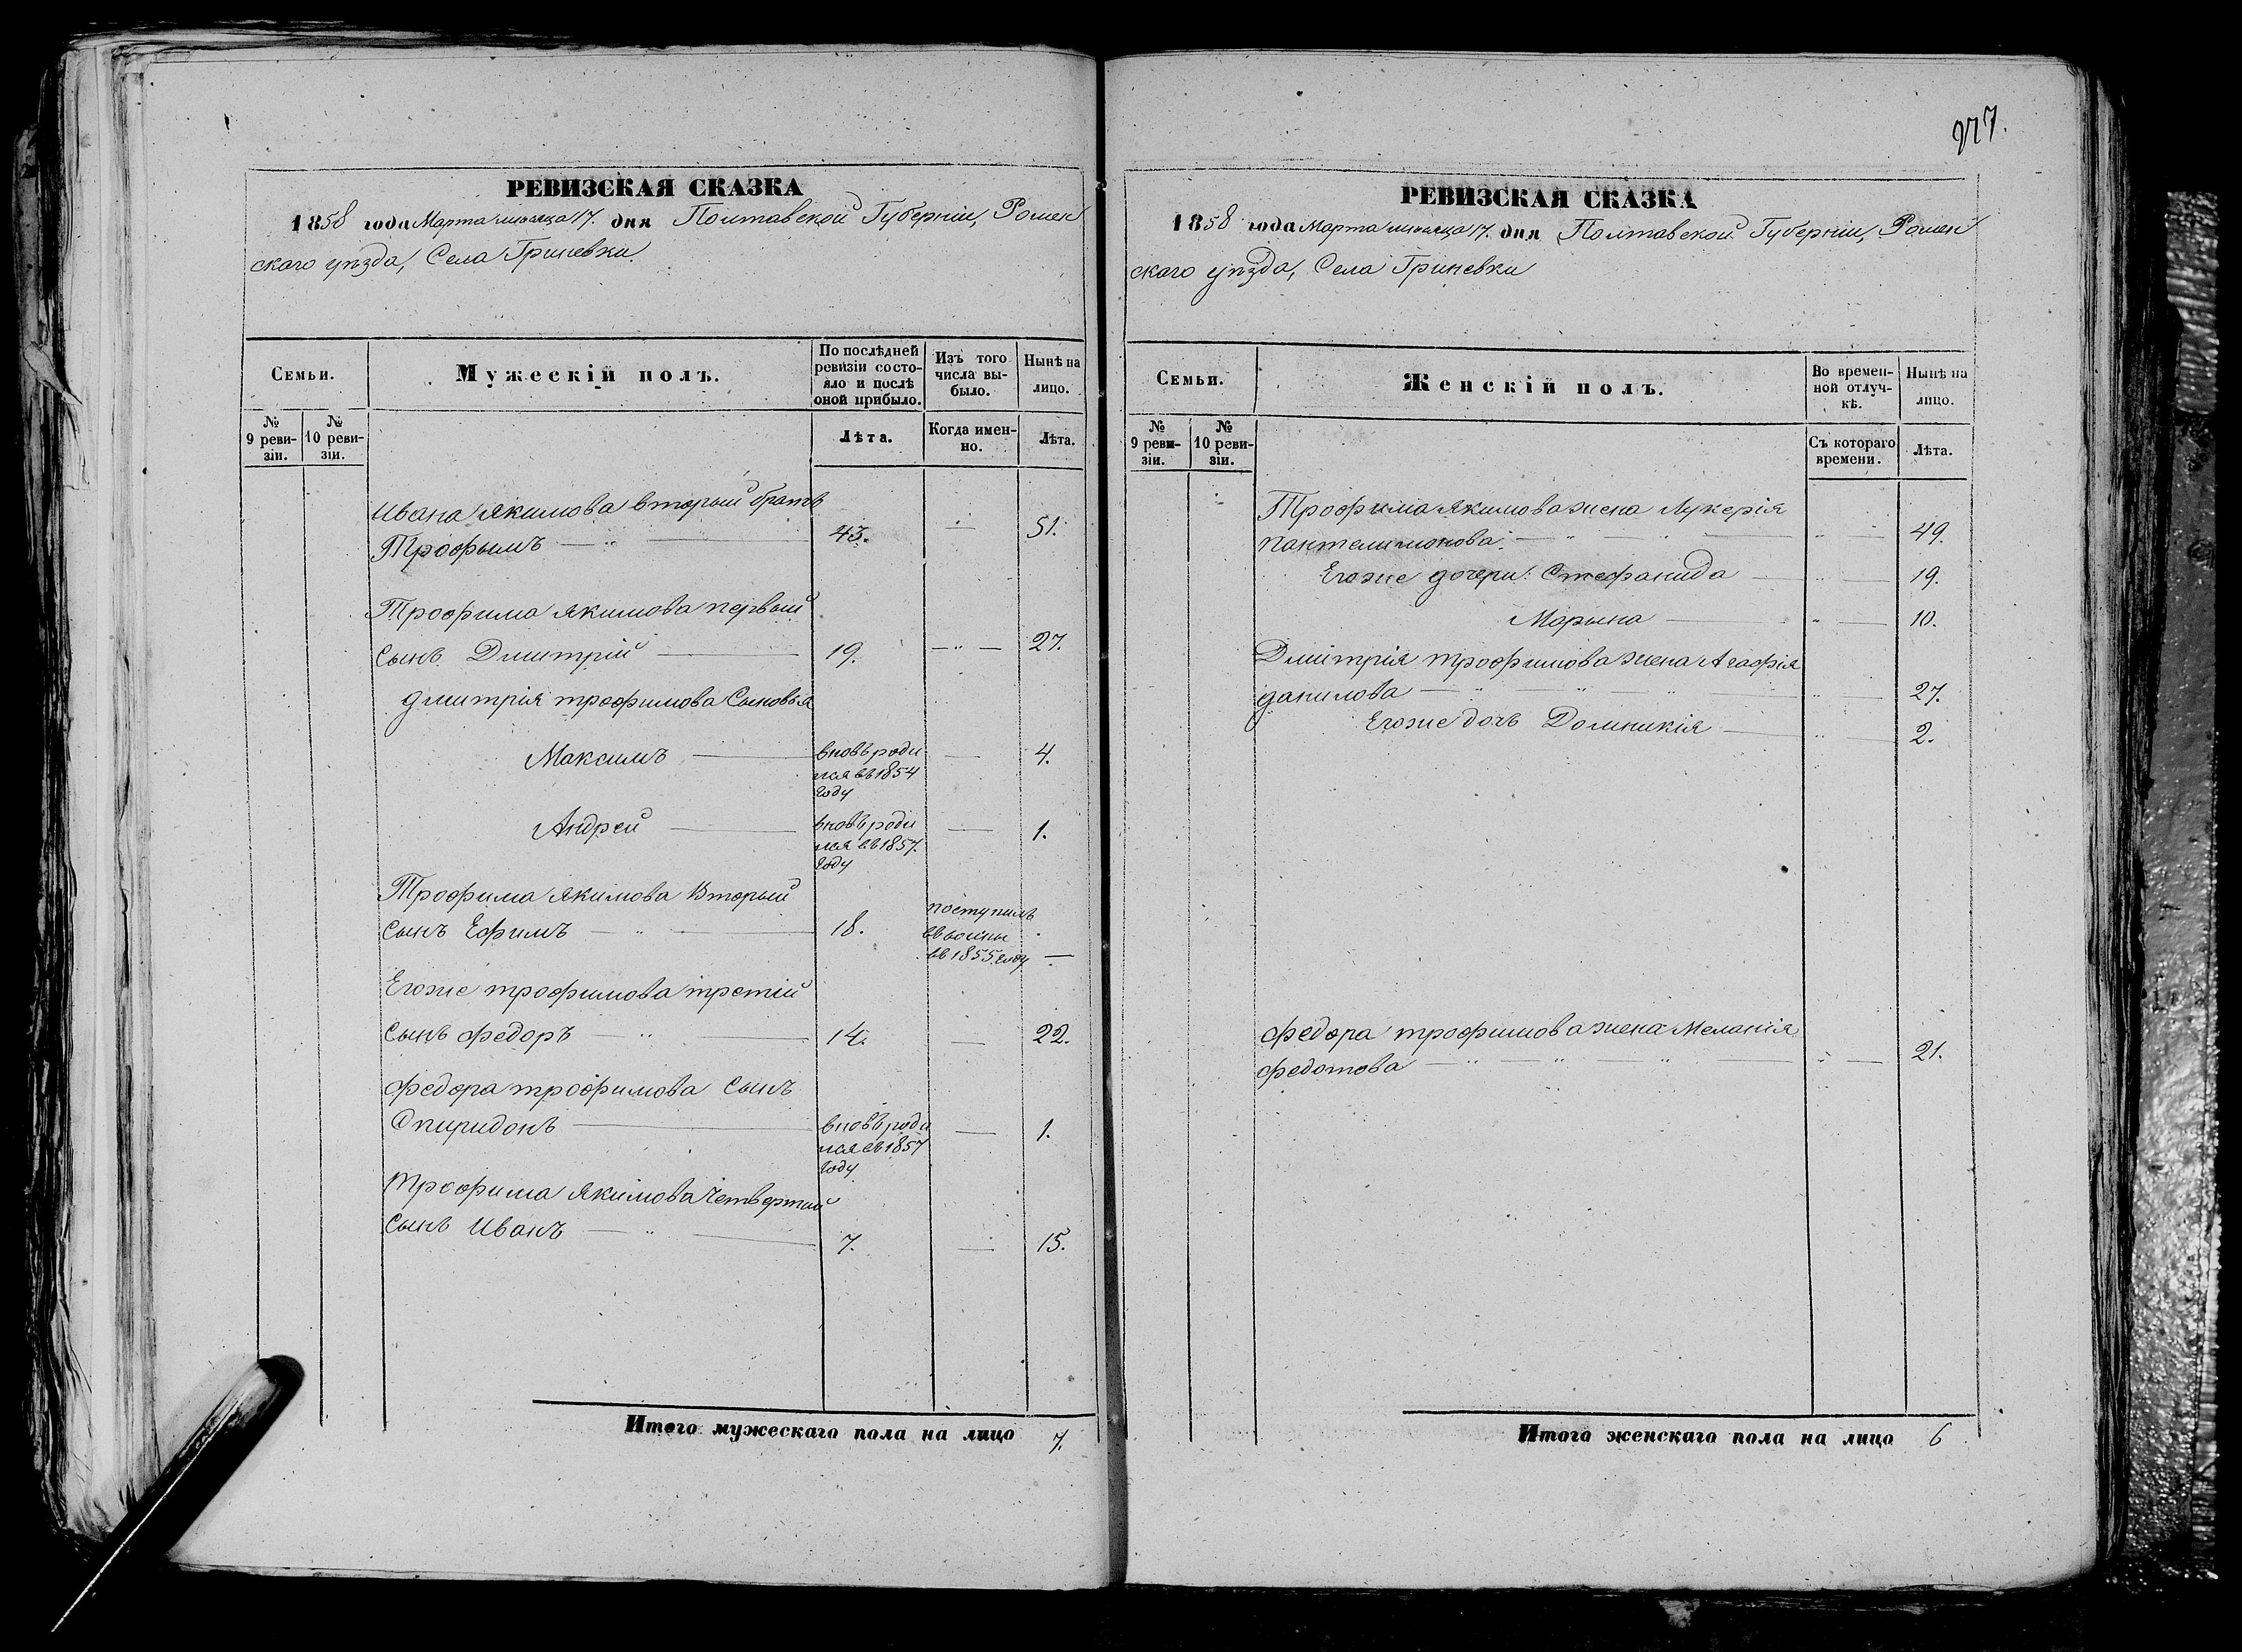 РЕВИЗСКАЯ СКАЗКА
1858 года Марта месяца 17. дня Полтавской Губерніи, Ромен
скаго уѣзда, Села Гриневки
Семьи.
Мужескій полъ.
По послѣдней
ревизіи состо-
яло и послѣ
оной прибыло.
Изъ того
числа вы-
было.
Нынѣ на
лицо.
№
9 реви-
зіи.
№
10 реви-
зіи.
Лѣта.
Когда имен-
но.
Лѣта.
Ивана Якимова вторый братъ
Трофымъ — " — 43. — 51.
Трофима Якимова первый
сынъ Дмитрій — 19. — " — 27.
Дмитрія трофимова Сыновья
Максимъ — вновь роди — 4.
лся въ 1854
году
Андрей — вновь роди — 1.
лся въ 1857.
году
Трофима Якимова Вторый
сынъ Ефимъ — " — 18. поступилъ
въ 1855 году —
Егоже трофимова третій
сынъ федоръ — " — 14. — 22.
федора трофимова сынъ
Спиридонъ — вновь роди — 1.
лся въ 1857
году
трофима Якимова Четвертый
сынъ Иванъ — " — 7. — 15.
Итого мужескаго пола на лицо 7.
277.
РЕВИЗСКАЯ СКАЗКА
1858 года Марта месяца 17. дня Полтавской Губерніи, Ромен
скаго уѣзда, Села Гриневки
Семьи.
Женскій полъ.
Во времен-
ной отлуч-
кѣ.
Нынѣ на
лицо.
№
9 реви-
зіи.
№
10 реви-
зіи.
Съ котораго
времени.
Лѣта.
Трофима Якимова жена Лукерія
пантелимонова. — " — " — " — 49.
Егоже дочери: Стефанида — " — 19.
Марына — " — 10.
Дмитрія трофимова жена Агафія
данилова — " — " — " — " — 27.
Егоже дочь Домникія — " — 2.
федора трофимова жена Меланія
федотова — " — " — " — 21.
Итого женскаго пола на лицо 6